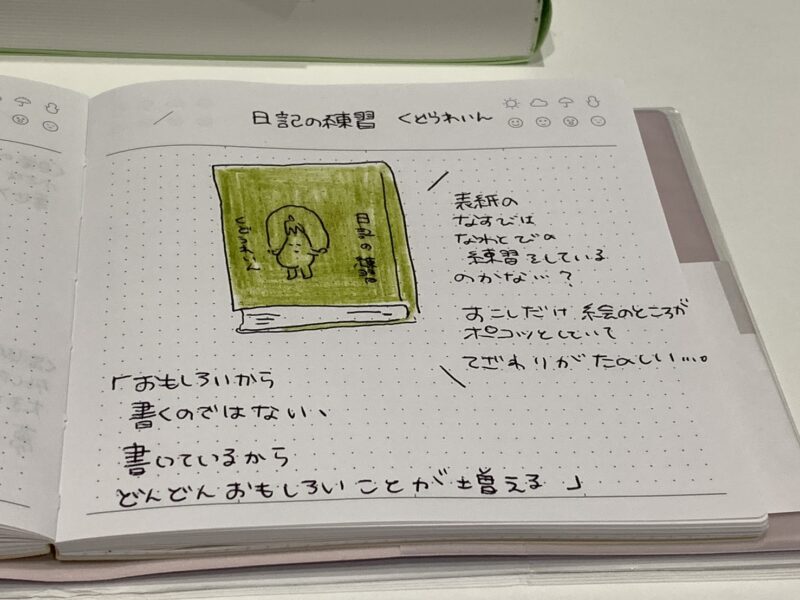 日記の練習 くどうれいん
日記の練習
くどうれいん
表紙の
なすびは
なわとびの
練習をしている
のかな…?
すこしだけ 絵のところが
ポコッとしていて
てざわりがたのしい…。
「おもしろいから
書くのではない、
書いているから
どんどんおもしろいことが増える」